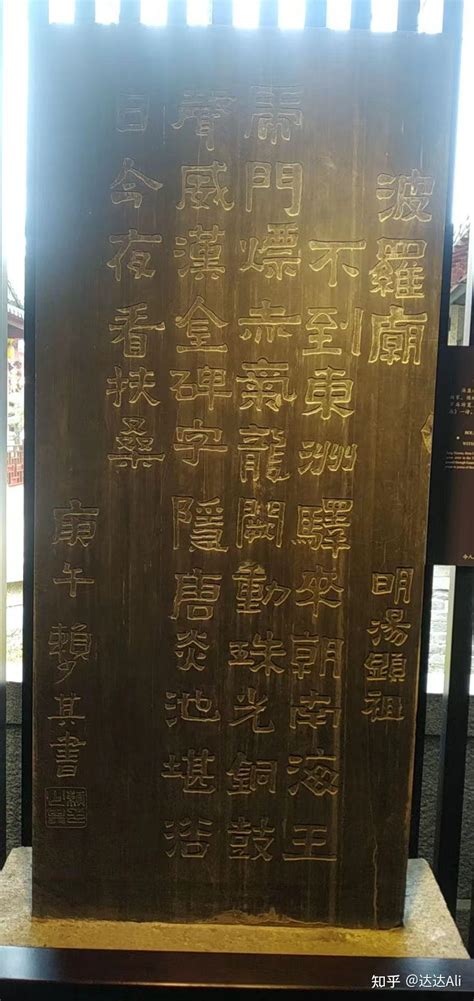 波羅廟 明湯顯祖
不到東洲驛來朝南海王
乕門熛赤氣龍闕動珠光銅鼓
聲威漢金碑字隱唐炎池堪浴
日今夜看扶桑
庚午賴少其書
知乎 @达达Ali